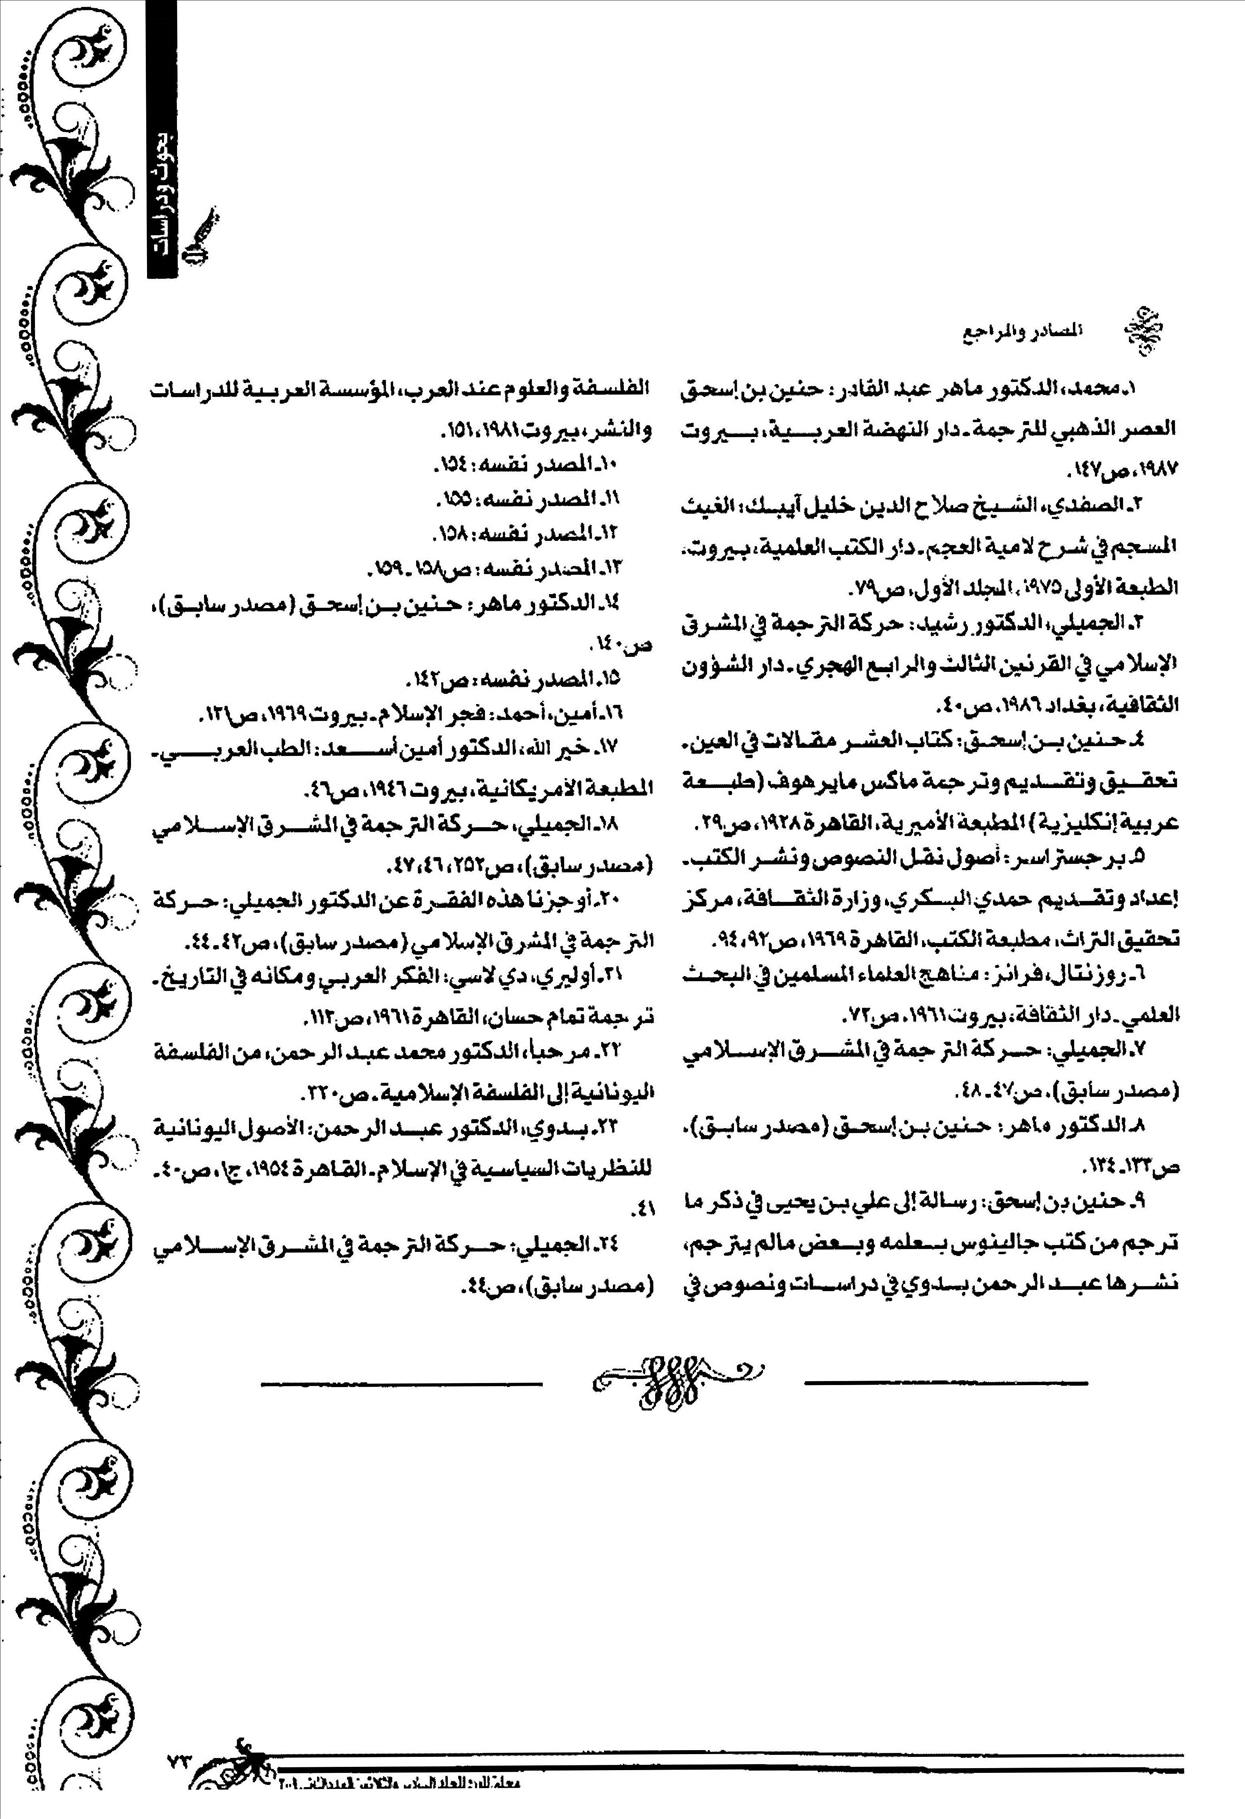 بحوث ودراسات
المصادر والمراجع
١ـ محمد، الدكتور ماهر عبد القادر: حنين بن إسحق
العصر الذهبي للترجمة ـ دار النهضة العربية، بيروت
١٩٨٧، ص١٤٧.
٢ـ الصفدي، الشيخ صلاح الدين خليل آيبك: الغيث
المسجم في شرح لامية العجم ـ دار الكتب العلمية، بيروت،
الطبعة الأولى ١٩٧٥، المجلد الأول، ص٧٩.
٣ـ الجميلي، الدكتور رشيد: حركة الترجمة في المشرق
الإسلامي في القرنين الثالث والرابع الهجري ـ دار الشؤون
الثقافية، بغداد ١٩٨٦، ص٤٠.
٤ـ حنين بن إسحق: كتاب العشر مقالات في العين ـ
تحقيق وتقديم وترجمة ماكس مايرهوف (طبعة
عربية إنكليزية) المطبعة الأميرية، القاهرة ١٩٢٨، ص٢٩.
٥ـ برجستراسر: أصول نقل النصوص ونشر الكتب ـ
إعداد وتقديم حمدي البكري، وزارة الثقافة، مركز
تحقيق التراث، مطبعة الكتب، القاهرة ١٩٦٩، ص٩٢، ٩٤.
٦ـ روزنتال، فرانز: مناهج العلماء المسلمين في البحث
العلمي ـ دار الثقافة، بيروت ١٩٦١، ص٧٢.
٧ـ الجميلي: حركة الترجمة في المشرق الإسلامي
(مصدر سابق)، ص٤٧ـ ٤٨.
٨ـ الدكتور ماهر: حنين بن إسحق (مصدر سابق)،
ص١٣٣ـ ١٣٤.
٩ـ حنين بن إسحق: رسالة إلى علي بن يحيى في ذكر ما
ترجم من كتب جالينوس بعلمه وبعض مالم يترجم،
نشرها عبد الرحمن بدوي في دراسات ونصوص في
الفلسفة والعلوم عند العرب، المؤسسة العربية للدراسات
والنشر، بيروت ١٩٨١، ١٥١.
١٠ـ المصدر نفسه: ١٥٤.
١١ـ المصدر نفسه: ١٥٥.
١٢ـ المصدر نفسه: ١٥٨.
١٣ـ المصدر نفسه: ص١٥٨ـ ١٥٩.
١٤ـ الدكتور ماهر: حنين بن إسحق (مصدر سابق)،
ص١٤٠.
١٥ـ المصدر نفسه: ص١٤٢.
١٦ـ أمين، أحمد: فجر الإسلام ـ بيروت ١٩٦٩، ص١٣١.
١٧ـ خير الله، الدكتور أمين أسعد: الطب العربي ـ
المطبعة الأمريكانية، بيروت ١٩٤٦، ص٤٦.
١٨ـ الجميلي، حركة الترجمة في المشرق الإسلامي
(مصدر سابق)، ص٢٥٢، ٤٦، ٤٧.
٢٠ـ أوجزنا هذه الفقرة عن الدكتور الجميلي: حركة
الترجمة في المشرق الإسلامي (مصدر سابق)، ص٤٢ـ ٤٤.
٢١ـ أوليري، دي لاسي: الفكر العربي ومكانه في التاريخ ـ
ترجمة تمام حسان، القاهرة ١٩٦١، ص١١٣.
٢٢ـ مرحبا، الدكتور محمد عبد الرحمن، من الفلسفة
اليونانية إلى الفلسفة الإسلامية ـ ص٣٢٠.
٢٣ـ بدوي، الدكتور عبد الرحمن: الأصول اليونانية
للنظريات السياسية في الإسلام ـ القاهرة ١٩٥٤، ج١، ص٤٠ـ
٤١.
٢٤ـ الجميلي: حركة الترجمة في المشرق الإسلامي
(مصدر سابق)، ص٤٤.
٧٣